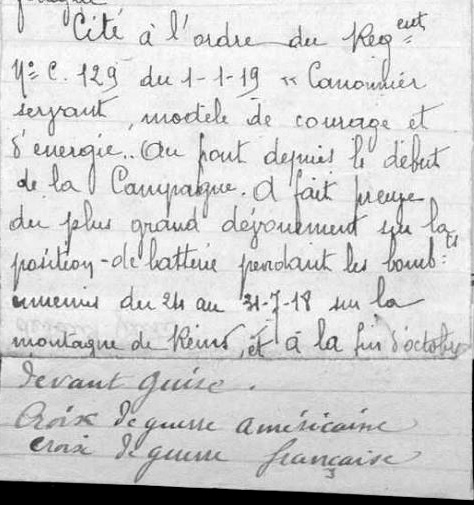 Cité à l'ordre du Régent
No C. 129 du 1-1-19 " Canonnier
servant, modèle de courage et
d'énergie.. Au front depuis le début
de la Campagne. A fait preuve
du plus grand dévouement sur la
position-de batterie pendant les bomb:ts
ennemis du 24 au 31-7-18 sur la
montagne de Reims, et à la fin d'octobre
devant Guise.
Croix de guerre américaine
croix de guerre française